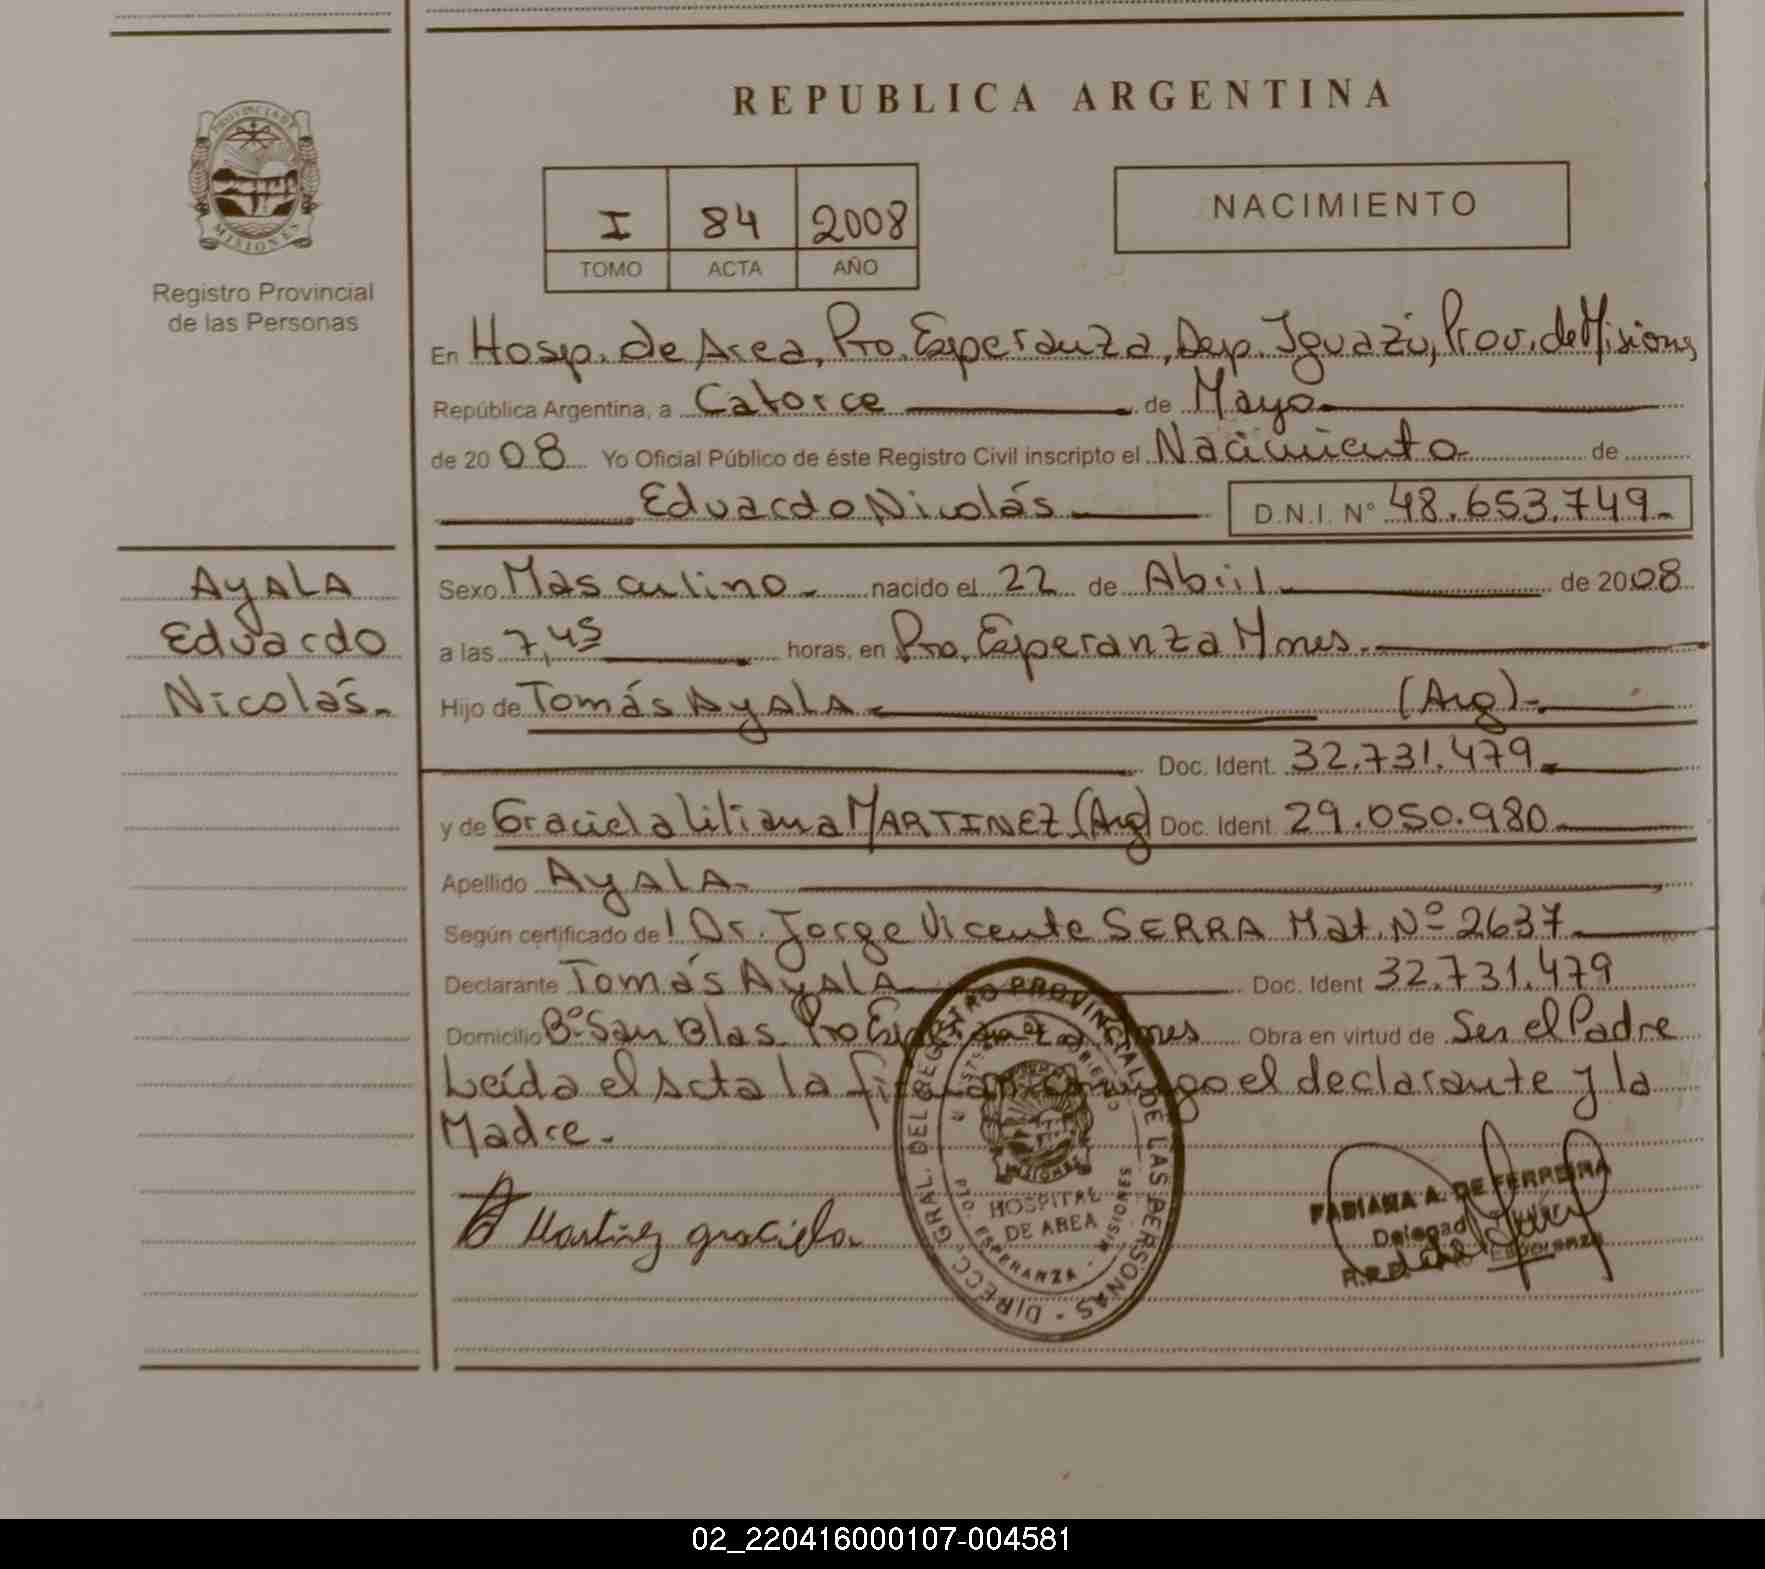 REPUBLICA ARGENTINA
PROVINCIA DE
MISIONES
Registro Provincial
de las Personas
I 84 2008
TOMO ACTA AÑO
NACIMIENTO
En Hosp. de Area, Pto. Esperanza, Dep. Iguazú, Prov. de Misiones
República Argentina, a Catorce de Mayo
de 2008 Yo Oficial Público de éste Registro Civil inscripto el Nacimiento de
Eduardo Nicolás D.N.I. N° 48.653.749.-
AyALA
Eduardo
Nicolás.-
Sexo Masculino.- nacido el 22 de Abril de 2008
a las 7,45 horas, en Pto. Esperanza Mnes.
Hijo de Tomás AyALA (Arg).-
Doc. Ident. 32.731.479
y de Graciela Liliana MARTINEZ (Arg) Doc. Ident. 29.050.980
Apellido AyALA.-
Según certificado de l Dr. Jorge Vicente SERRA Mat. Nº 2637
Declarante Tomás AyALA Doc. Ident 32.731.479
Domicilio Bº San Blas Pto Esperanza Mnes Obra en virtud de Ser el Padre
Leída el Acta la firman conmigo el declarante y la
Madre.-
Martinez graciela
DIRECC. GRAL. DEL REGISTRO PROVINCIAL DE LAS PERSONAS
MISIONES
HOSPITAL
DE AREA
PTO. ESPERANZA - MISIONES
FABIANA A. DE FERREIRA
02_220416000107-004581